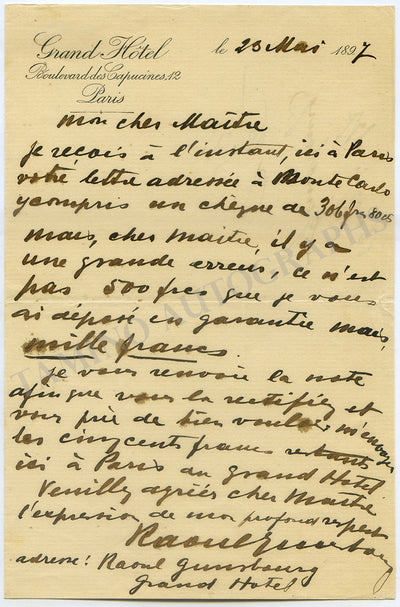 Grand Hôtel
Boulevard des Capucines, 12
Paris
le 23 Mai 1897
mon cher Maître
Je reçois à l'instant, ici à Paris
votre lettre adressée à Monte Carlo
y compris un chèque de 306 frs 80 cs
mais, cher maître, il y a
une grande erreur, ce n'est
pas 500 frcs que je vous
ai déposé en garantie mais,
mille francs.
Je vous renvoie la note
afin que vous la rectifiez et
vous prie de bien vouloir m'envoyer
les cinq cents francs restants
ici à Paris au grand Hotel
Veuillez agréer cher Maître
l'expression de mon profond respect
Raoul Gunsbourg
adresse: Raoul Gunsbourg
Grand Hotel
TAMINO AUTOGRAPHS